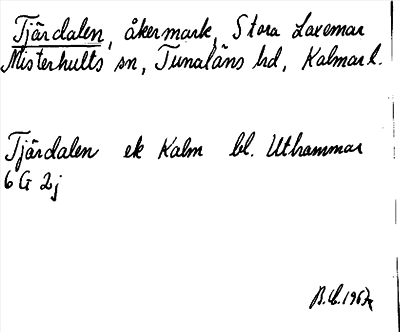 Tjärdalen, åkermark, Stora Laxemar
Misterhults sn, Tunaläns hd, Kalmar l.
Tjärdalen ek Kalm bl. Uthammar
6 G 2j